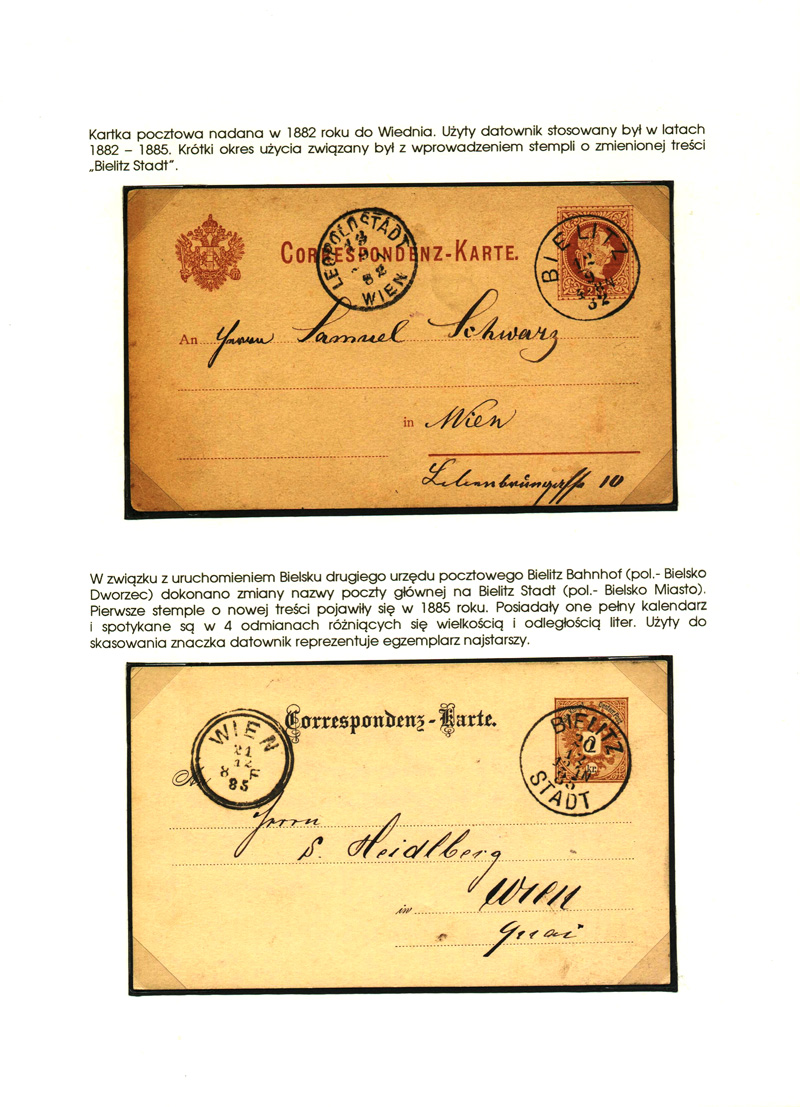 Kartka pocztowa nadana w 1882 roku do Wiednia. Użyty datownik stosowany był w latach
1882 – 1885. Krótki okres użycia związany był z wprowadzeniem stempli o zmienionej treści
„Bielitz Stadt”.
LEOPOLDSTADT
WIEN
82
CORRESPONDENZ-KARTE.
BIELITZ
12
9
An Herrn Samuel Schwarz
in Wien
10
W związku z uruchomieniem Bielsku drugiego urzędu pocztowego Bielitz Bahnhof (pol.- Bielsko
Dworzec) dokonano zmiany nazwy poczty głównej na Bielitz Stadt (pol.- Bielsko Miasto).
Pierwsze stemple o nowej treści pojawiły się w 1885 roku. Posiadały one pełny kalendarz
i spotykane są w 4 odmianach różniących się wielkością i odległością liter. Użyty do
skasowania znaczka datownik reprezentuje egzemplarz najstarszy.
WIEN
21
12
8 F
85
Correspondenz-Karte.
BIELITZ
20
12
85
STADT
Herrn
S. Heidlberg
in Wien
Quai